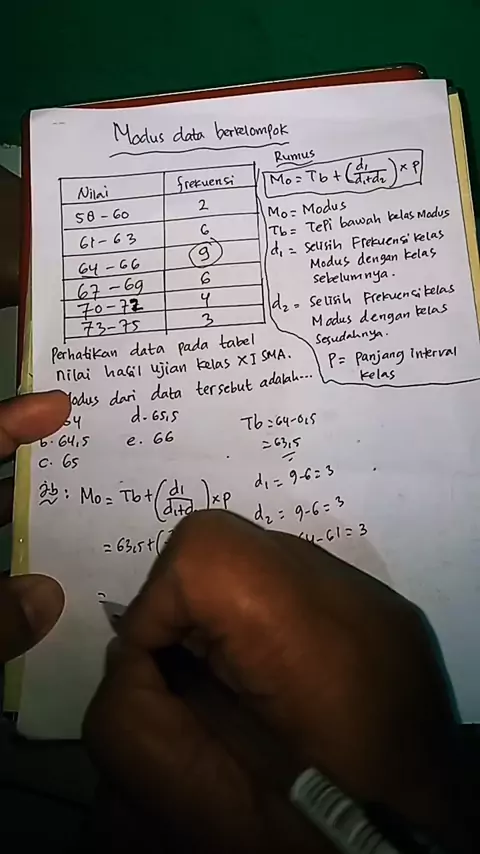 Modus data berkelompok
Nilai frekuensi
58 - 60 2
61 - 63 6
64 - 66 9
67 - 69 6
70 - 72 4
73 - 75 3
Rumus
Mo = Tb + (d1/d1+d2) × p
Mo = Modus
Tb = Tepi bawah kelas Modus
d1 = Selisih Frekuensi kelas
Modus dengan kelas
sebelumnya.
d2 = Selisih Frekuensi kelas
Modus dengan kelas
sesudahnya.
P = panjang interval
kelas
Perhatikan data pada tabel
nilai hasil ujian kelas XI SMA.
Modus dari data tersebut adalah...
d. 65,5
b. 64,5 e. 66
c. 65
Jb : Mo = Tb + (d1/d1+d2) × p
= 63,5 + (
=
Tb = 64 - 0,5
= 63,5
d1 = 9 - 6 = 3
d2 = 9 - 6 = 3
64 - 61 = 3